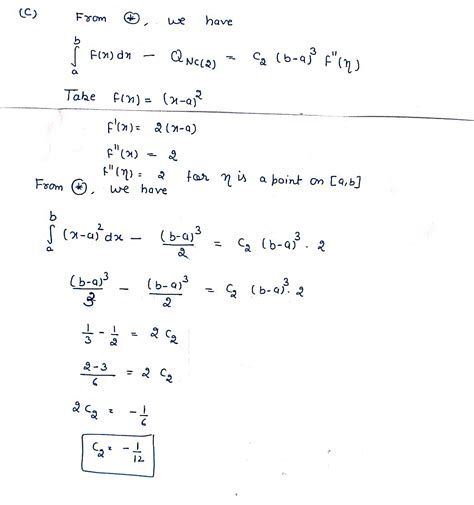 (C) From ⊛, we have
∫_a^b f(x) dx - Q_{NC(2)} = C₂ (b-a)³ f''(η)
Take f(x) = (x-a)²
f'(x) = 2(x-a)
f''(x) = 2
f''(η) = 2 for η is a point on [a,b]
From ⊛, we have
∫_a^b (x-a)² dx - (b-a)³/2 = C₂ (b-a)³ · 2
(b-a)³/3 - (b-a)³/2 = C₂ (b-a)³ · 2
1/3 - 1/2 = 2 C₂
2-3/6 = 2 C₂
2 C₂ = -1/6
C₂ = -1/12